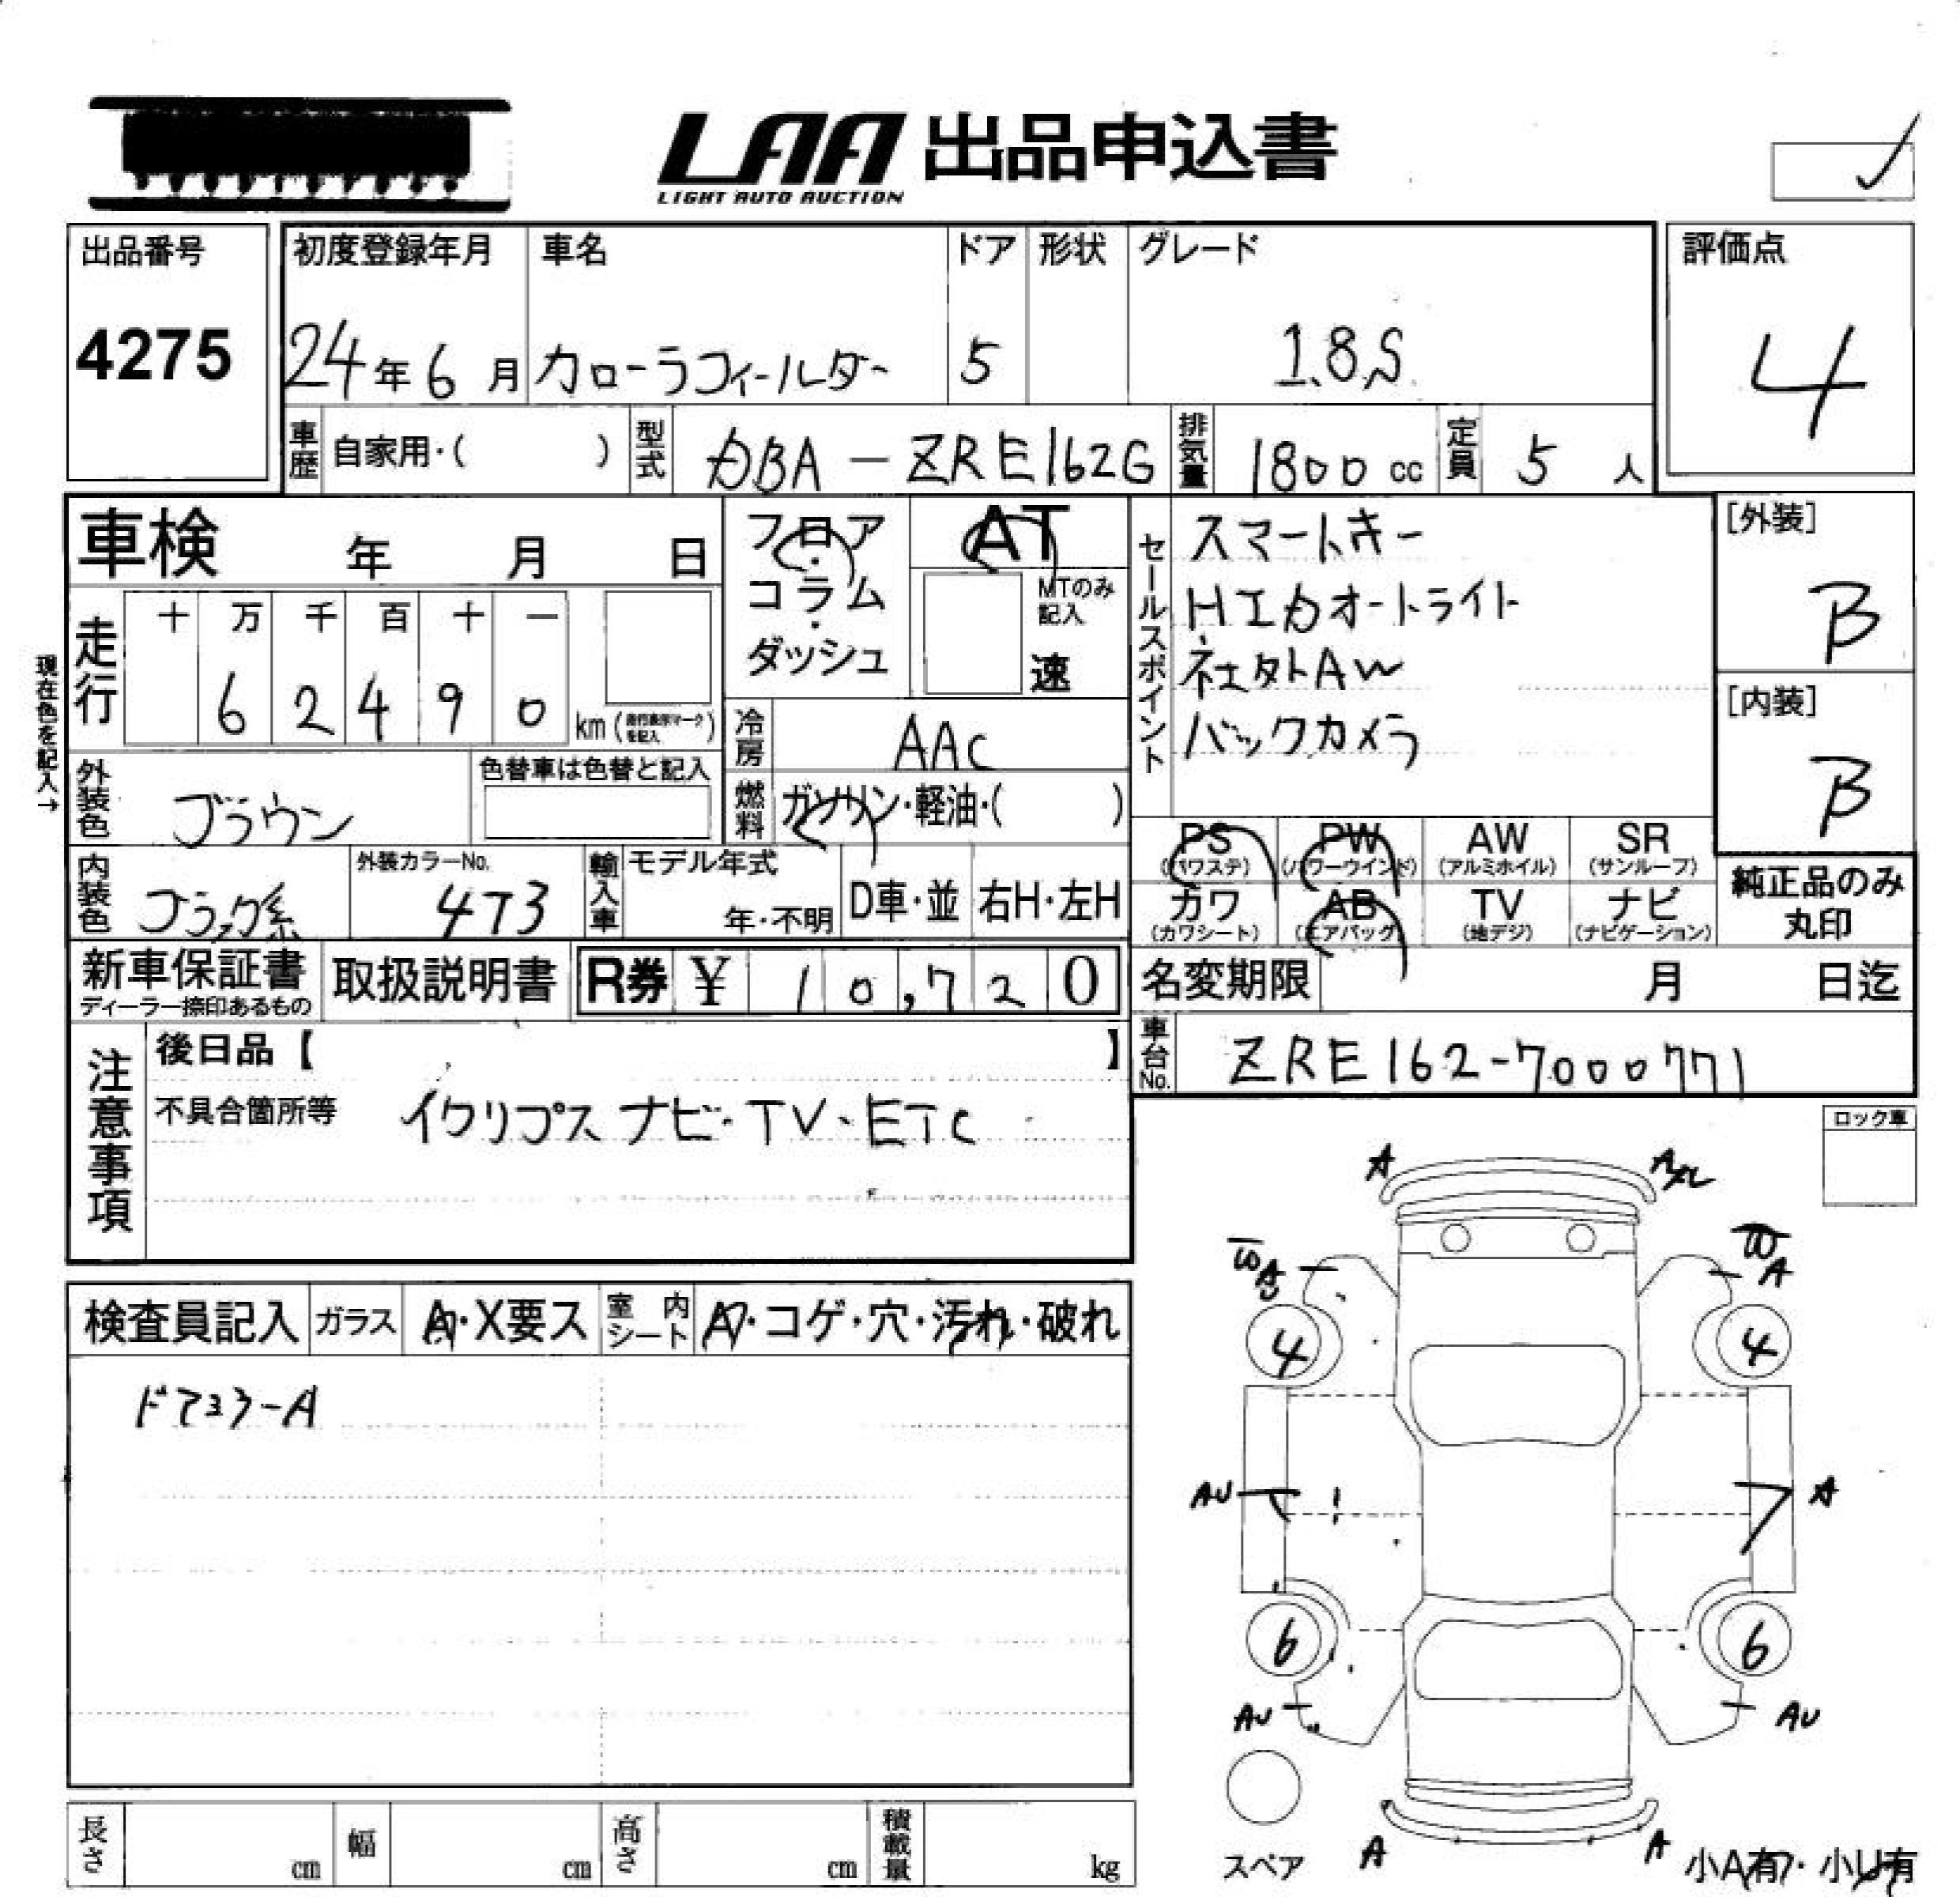 LAA 出品申込書
LIGHT AUTO AUCTION
出品番号
4275
初度登録年月
24年6月
車名
カローラフィールダー
ドア
5
形状
グレード
1.8S
評価点
4
車歴 自家用・( )
型式 DBA-ZRE162G
排気量 1800cc
定員 5人
車検 年 月 日
フロア・コラム・ダッシュ
AT
MTのみ記入
速
セールスポイント
スマートキー
HIDオートライト
社外AW
バックカメラ
[外装]
B
[内装]
B
現在色を記入→
走行
十 万 千 百 十 一
6 2 4 9 0 km (走行表示マークを記入)
冷房 AAC
燃料 ガソリン・軽油・( )
外装色 ブラウン
色替車は色替と記入
内装色 ブラック系
外装カラーNo.
4T3
輸入車
モデル年式
年・不明
D車・並
右H・左H
PS (パワステ)
PW (パワーウインド)
AW (アルミホイル)
SR (サンルーフ)
カワ (カワシート)
AB (エアバック)
TV (地デジ)
ナビ (ナビゲーション)
純正品のみ丸印
新車保証書
ディーラー捺印あるもの
取扱説明書
R券 ¥ 10,720
名変期限 月 日迄
車台No. ZRE162-7000771
注意事項
後日品【 】
不具合箇所等 イクリプス ナビ・TV・ETC
ロック車
検査員記入
ガラス A・X要ス
室内シート A・コゲ・穴・汚れ・破れ
ドアミラーA
A
W A
W A
4
4
AU
A
6
6
AU
AU
スペア
A
A
小A有・小U有
長さ cm
幅 cm
高さ cm
積載量 kg